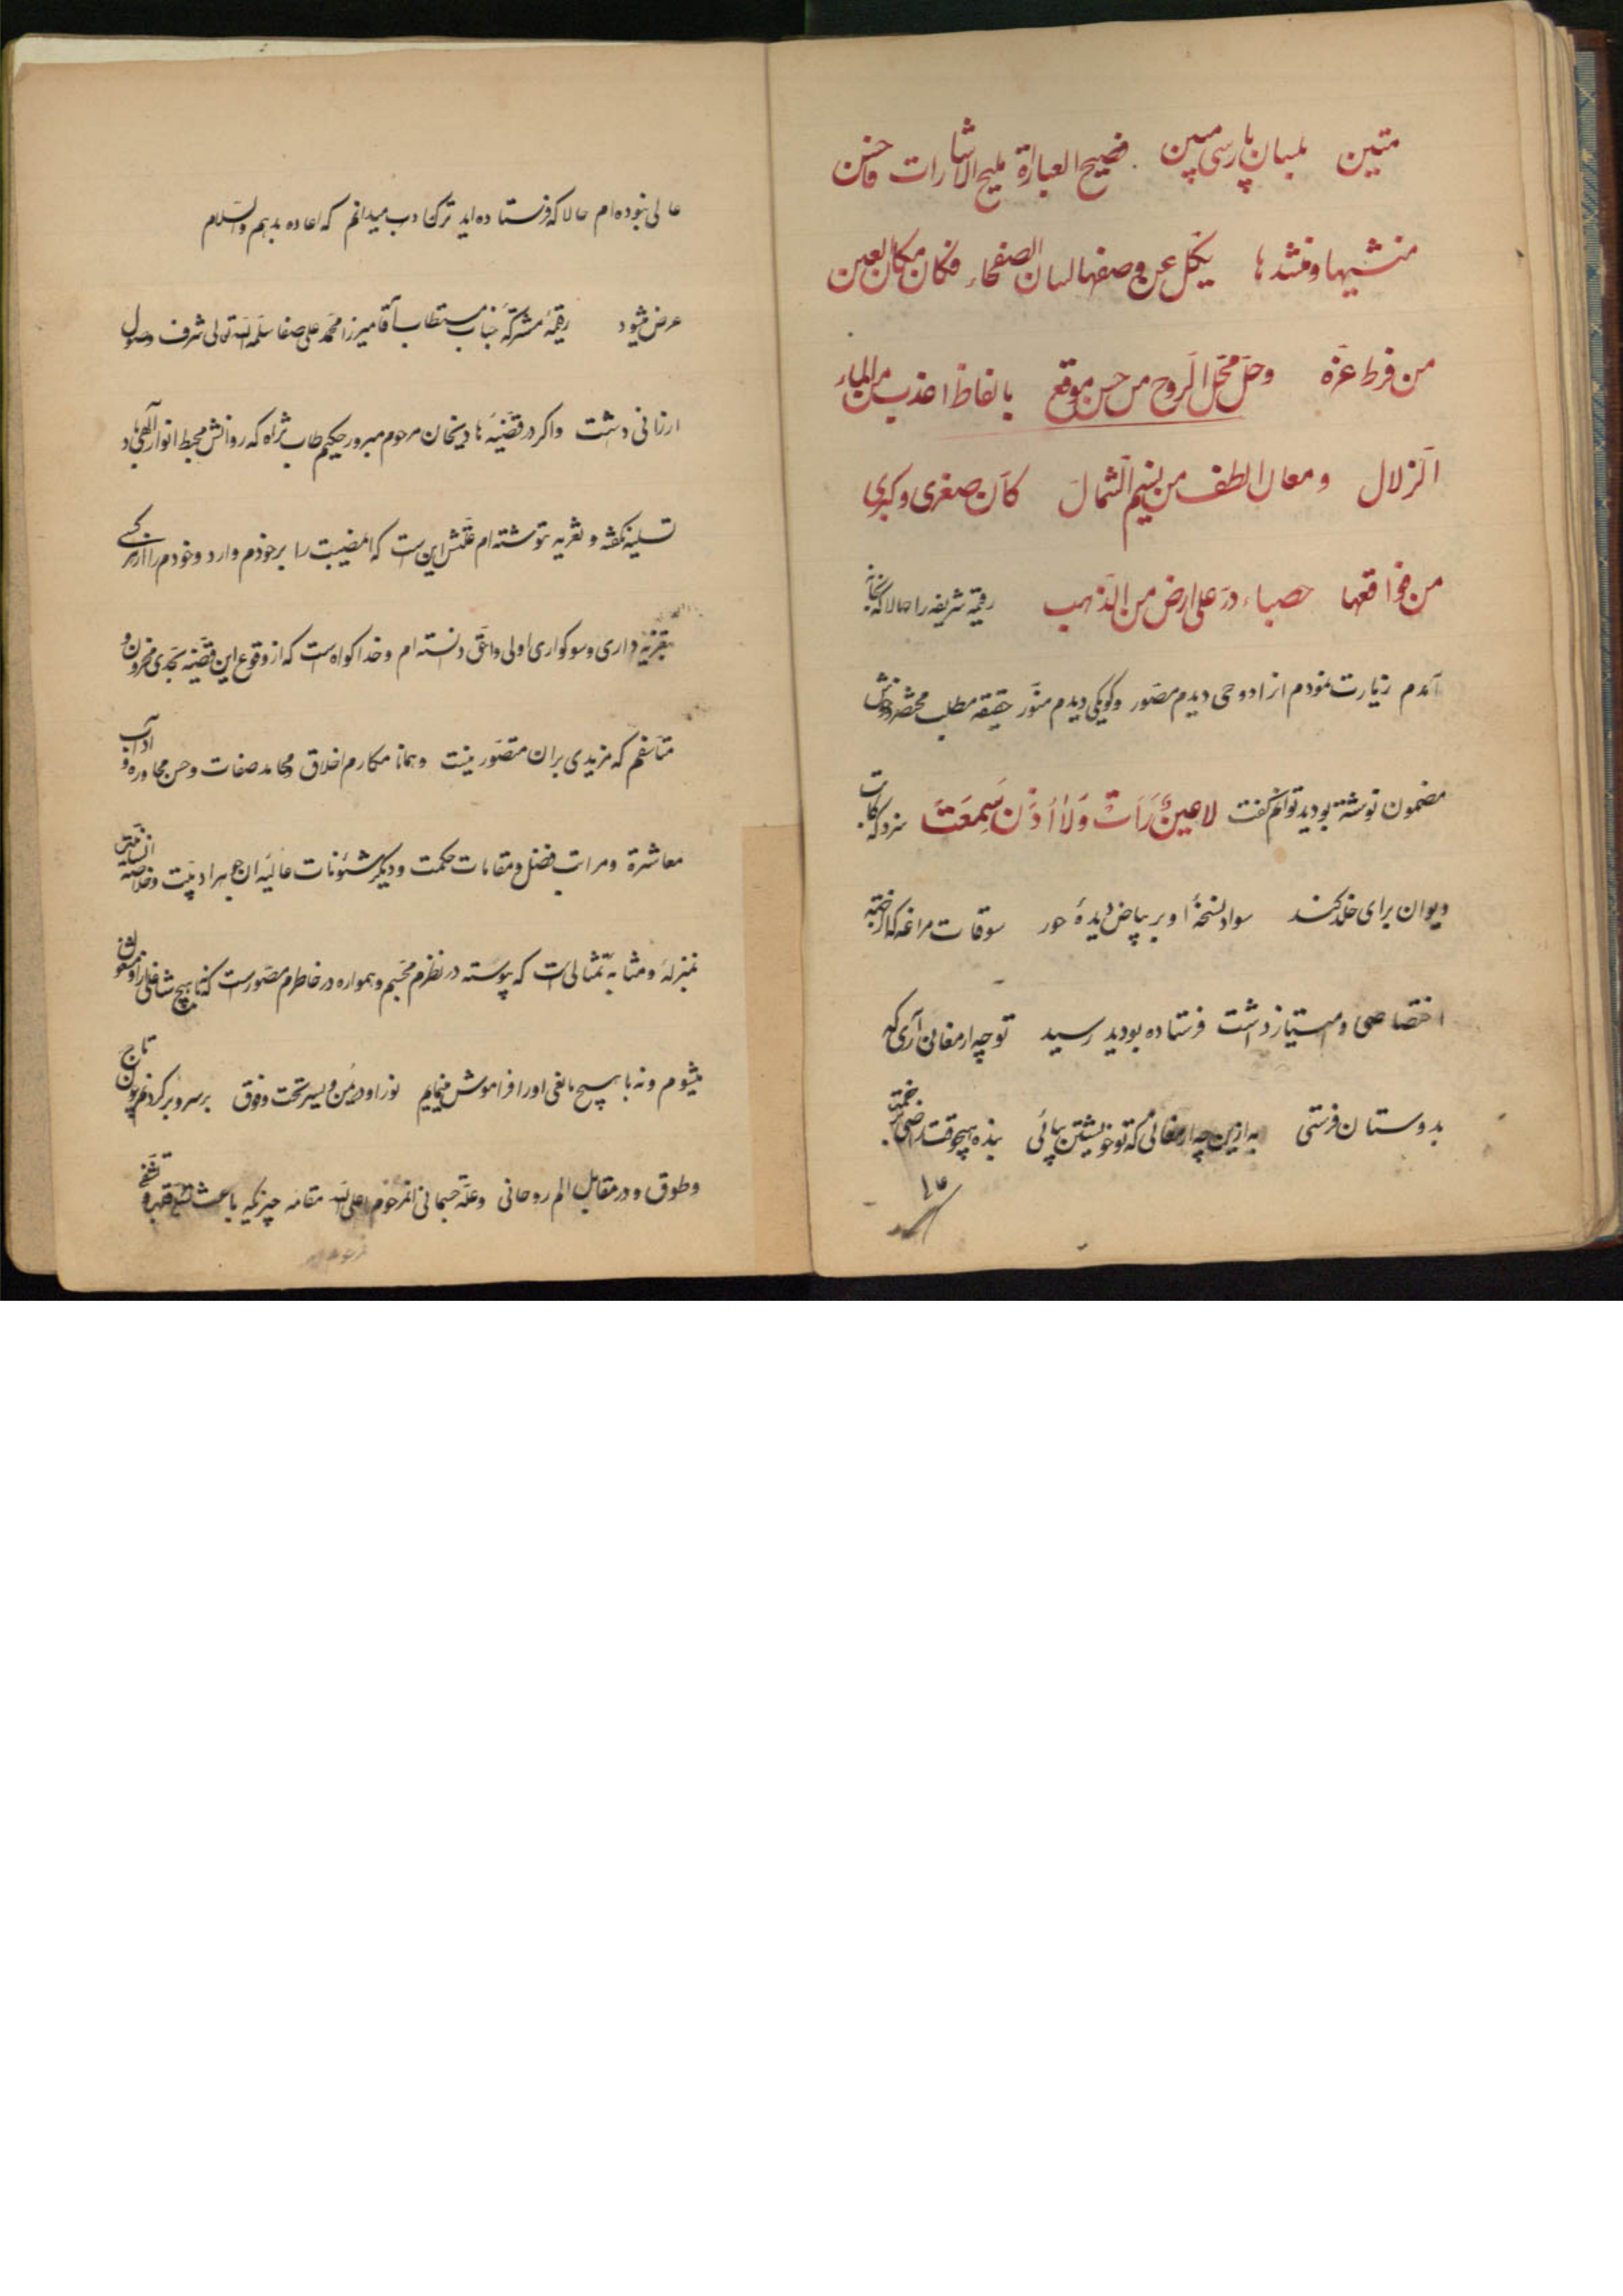 متین بلسان پارسی مبین فصیح العبارة ملیح الاشارات فاحسن
منشیها و منشدها یکل عن وصفها لسان الفصحاء فکان مکان العین
من فرط عزه وحل محل الروح من حسن موقع بالفاظ اعذب من الماء
الزلال ومعان الطف من نسیم الشمال کان صغری و کبری
من فواقعها حصباء در علی ارض من الذهب رقیمه شریفه را حالا که بخانه
آمدم زیارت نمودم از ادوحی دیدم مصور و کوکبی دیدم منور حقیقه مطلب مختصر
مضمون نوشته بودید توانم گفت لا عین رأت ولا اذن سمعت سزد که کاتب
دیوان برای خلد کند سواد نسخهٔ او بر بیاض دیدهٔ حور سوقات مراغه که از
اختصاصی و امتیاز داشت فرستاده بودید رسید تو چه ارمغان آری که
بدوستان فرستی به ازین چه ارمغانی که تو خویشتن بیائی بنده هیچوقت راضی
عالی نبوده‌ام حالا که فرستاده‌اید ترک ادب میدانم که اعاده بدهم والسلام
عرض میشود رقیمهٔ مشترکهٔ جناب مستطاب آقا میرزا محمد علی صفا سلمه الله تعالی شرف وصول
ارزانی داشت و اگر در قضیهٔ هادیخان مرحوم مبرور حکیم طاب ثراه که روانش محیط انوار الهی باد
تسلیه نگفته و تعزیه ننوشته‌ام علتش این است که این مصیبت را بر خودم وارد و خودم را از هر کسی
بتعزیه داری و سوکواری اولی و احق دانسته‌ام و خدا کواه است که از وقوع این قضیه بحدی محزون و
متاسفم که مزیدی بران متصور نیست و همانا مکارم اخلاق و محامد صفات و حسن محاوره و آداب
معاشرة و مراتب فضل و مقامات حکمت و دیگر شئونات عالیه ان جوهر ادبیت و خلاصه انسانیت
بمنزله و مثابه تمثالی است که پیوسته در نظرم مجسم و همواره در خاطرم مصور است که نه با هیچ شاغلی از او مشغول
میشوم و نه با هیچ مانعی او را فراموش مینمایم نور او در یمن و یسر و تحت و فوق بر سر و بر گردنم چون تاج
و طوق و در مقابل الم روحانی و علة جسمانی انمرحوم اعلی الله مقامه چیزیکه باعث